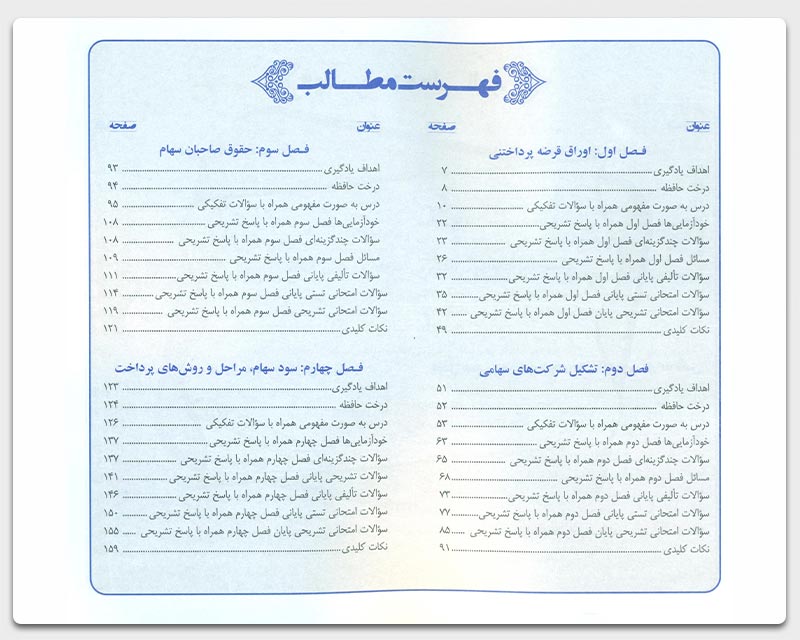 فهرست مطالب
عنوان صفحه
فصل اول: اوراق قرضه پرداختنی
اهداف یادگیری ۷
درخت حافظه ۸
درس به صورت مفهومی همراه با سؤالات تفکیکی ۱۰
خودآزمایی‌ها فصل اول همراه با پاسخ تشریحی ۲۲
سؤالات چندگزینه‌ای فصل اول همراه با پاسخ تشریحی ۲۳
مسائل فصل اول همراه با پاسخ تشریحی ۲۶
سؤالات تألیفی پایانی فصل اول همراه با پاسخ تشریحی ۳۲
سؤالات امتحانی تستی پایانی فصل اول همراه با پاسخ تشریحی ۳۵
سؤالات امتحانی تشریحی پایان فصل اول همراه با پاسخ تشریحی ۴۲
نکات کلیدی ۴۹
فصل دوم: تشکیل شرکت‌های سهامی
اهداف یادگیری ۵۱
درخت حافظه ۵۲
درس به صورت مفهومی همراه با سؤالات تفکیکی ۵۳
خودآزمایی‌ها فصل دوم همراه با پاسخ تشریحی ۶۳
سؤالات چندگزینه‌ای فصل دوم همراه با پاسخ تشریحی ۶۵
مسائل فصل دوم همراه با پاسخ تشریحی ۶۸
سؤالات تألیفی پایانی فصل دوم همراه با پاسخ تشریحی ۷۳
سؤالات امتحانی تستی پایانی فصل دوم همراه با پاسخ تشریحی ۷۷
سؤالات امتحانی تشریحی پایان فصل دوم همراه با پاسخ تشریحی ۸۵
نکات کلیدی ۹۱
عنوان صفحه
فصل سوم: حقوق صاحبان سهام
اهداف یادگیری ۹۳
درخت حافظه ۹۴
درس به صورت مفهومی همراه با سؤالات تفکیکی ۹۵
خودآزمایی‌ها فصل سوم همراه با پاسخ تشریحی ۱۰۸
سؤالات چندگزینه‌ای فصل سوم همراه با پاسخ تشریحی ۱۰۸
مسائل فصل سوم همراه با پاسخ تشریحی ۱۰۹
سؤالات تألیفی پایانی فصل سوم همراه با پاسخ تشریحی ۱۱۱
سؤالات امتحانی تستی پایانی فصل سوم همراه با پاسخ تشریحی ۱۱۴
سؤالات امتحانی تشریحی فصل سوم همراه با پاسخ تشریحی ۱۱۹
نکات کلیدی ۱۲۱
فصل چهارم: سود سهام، مراحل و روش‌های پرداخت
اهداف یادگیری ۱۲۳
درخت حافظه ۱۲۴
درس به صورت مفهومی همراه با سؤالات تفکیکی ۱۲۶
خودآزمایی‌ها فصل چهارم همراه با پاسخ تشریحی ۱۳۷
سؤالات چندگزینه‌ای فصل چهارم همراه با پاسخ تشریحی ۱۳۷
سؤالات تشریحی پایانی فصل چهارم همراه با پاسخ تشریحی ۱۴۱
سؤالات تألیفی پایانی فصل چهارم همراه با پاسخ تشریحی ۱۴۶
سؤالات امتحانی تستی پایانی فصل چهارم همراه با پاسخ تشریحی ۱۵۰
سؤالات امتحانی تشریحی پایان فصل چهارم همراه با پاسخ تشریحی ۱۵۵
نکات کلیدی ۱۵۹